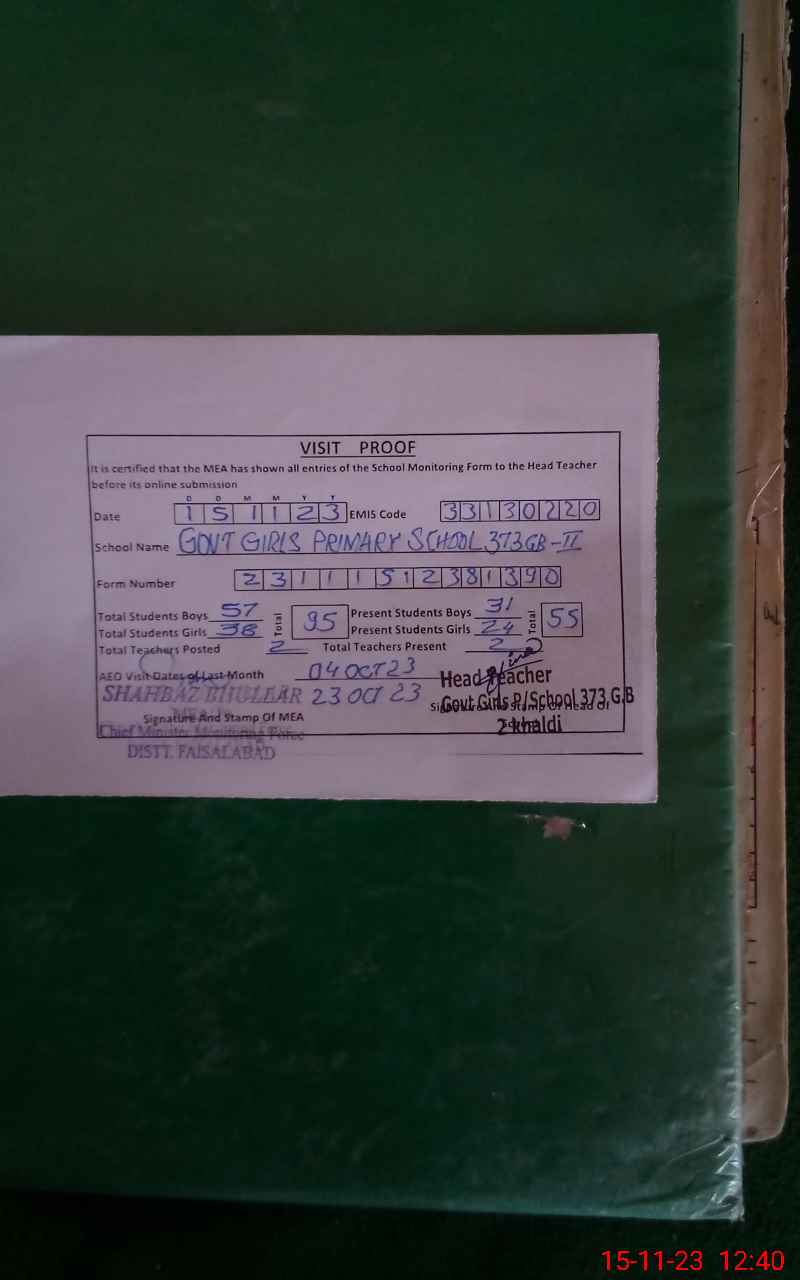 VISIT PROOF
It is certified that the MEA has shown all entries of the School Monitoring Form to the Head Teacher
before its online submission
D D M M Y Y
Date 1 5 1 1 2 3 EMIS Code 3 3 1 3 0 2 2 0
School Name GOVT GIRLS PRIMARY SCHOOL 373GB-II
Form Number 2 3 1 1 1 5 1 2 3 8 1 3 9 0
Total Students Boys 57 Total 95 Present Students Boys 31 Total 55
Total Students Girls 38 Present Students Girls 24
Total Teachers Posted 2 Total Teachers Present 2
AEO Visit Dates of Last Month 04 OCT 23
Head Teacher
SHAHBAZ BHULLAR 23 OCT 23
Govt Girls P/School 373 G.B
Signature And Stamp Of MEA
2 khaldi
Chief Minister Monitoring Force
DISTT. FAISALABAD
15-11-23 12:40